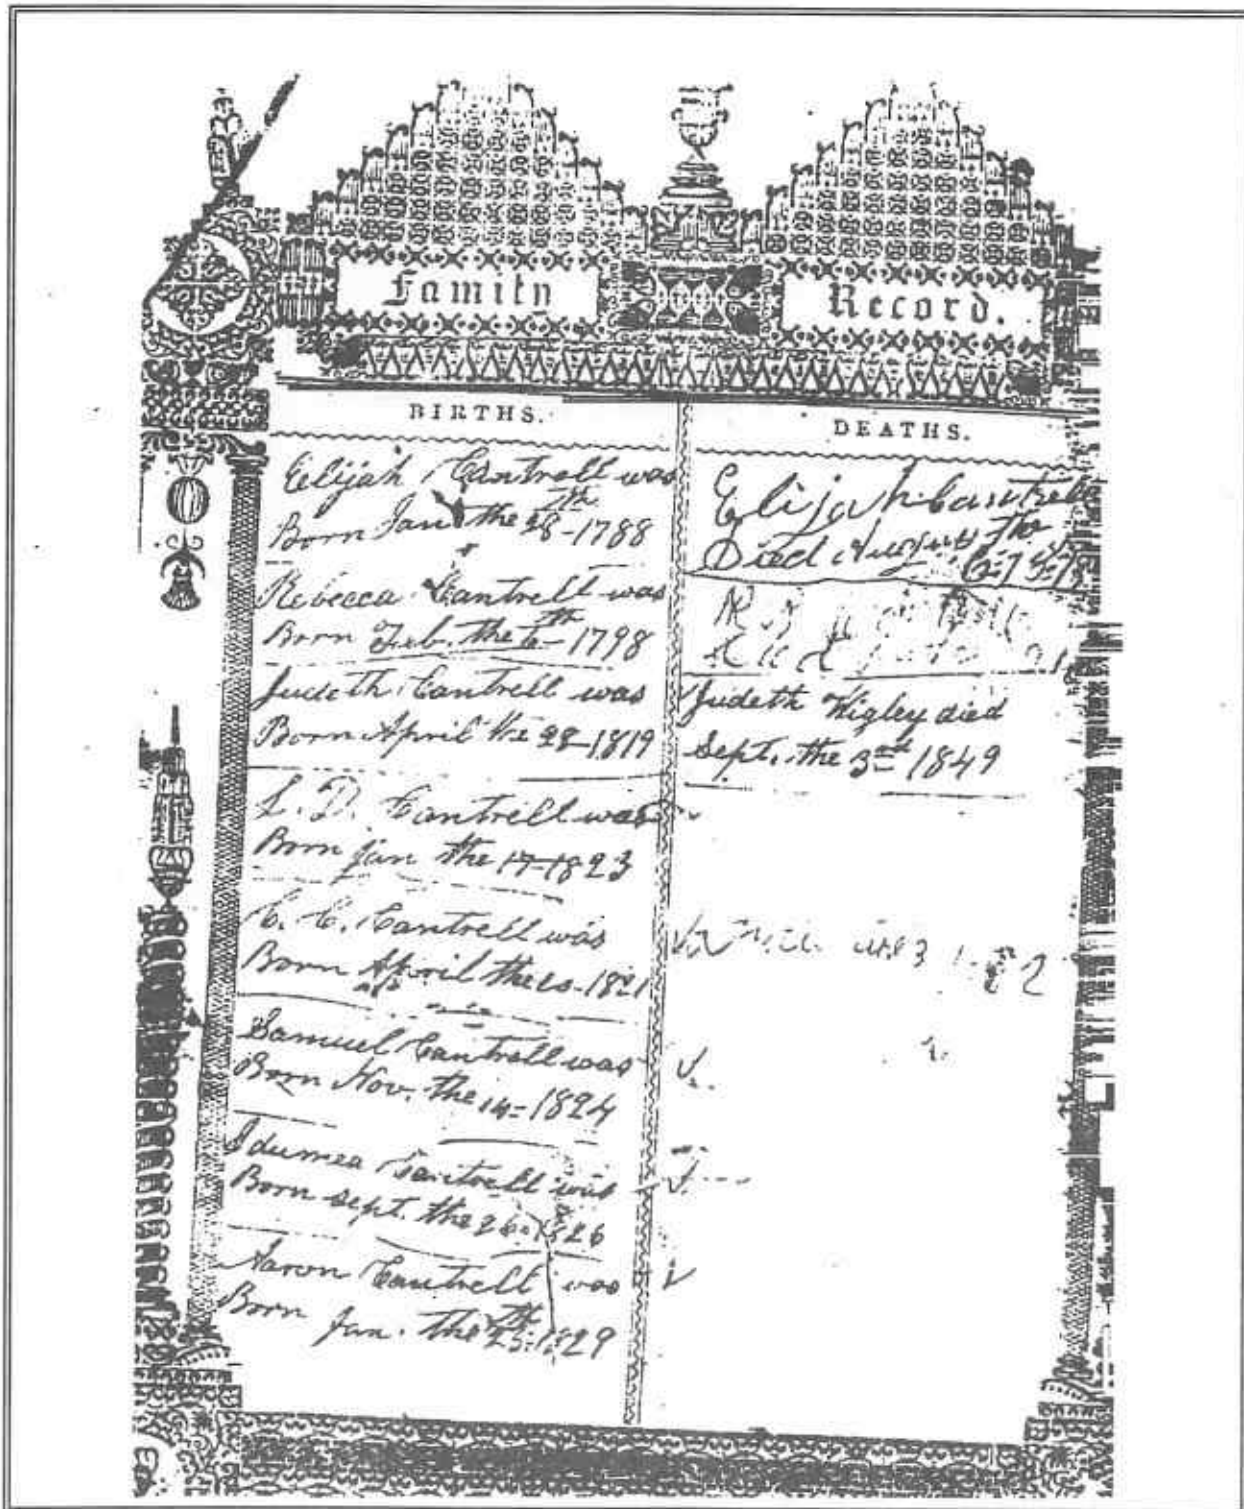 Family Record.
BIRTHS.
Elijah Cantrell was
Born Jan the 28th - 1788
Rebecca Cantrell was
Born Feb. the 6th 1798
Judeth Cantrell was
Born April the 28 - 1819
L. D. Cantrell was
Born Jan the 17 - 1823
C. C. Cantrell was
Born April the 20 - 1821
Samuel Cantrell was
Born Nov. the 14 = 1824
Idumea Cantrell was
Born Sept. the 26 = 1826
Aaron Cantrell was
Born Jan. the 25th = 1829
DEATHS.
Elijah Cantrell
Died August the
Judeth Higley died
Sept. the 3rd 1849